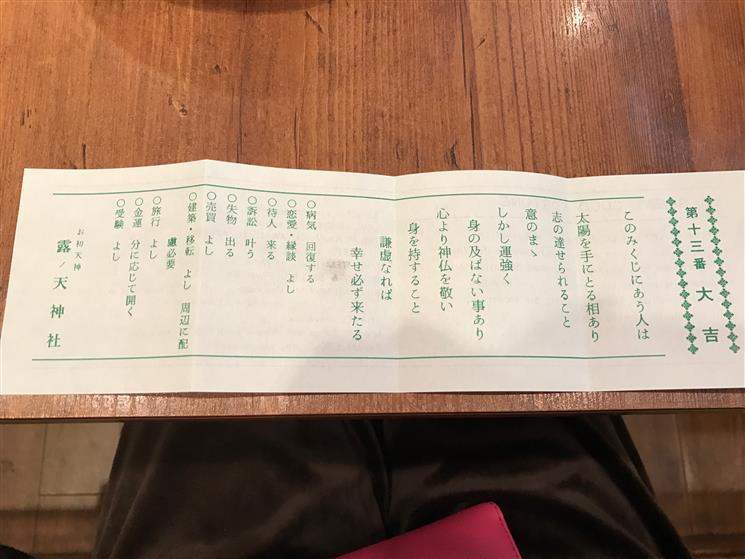 第十三番 大吉
このみくじにあう人は
太陽を手にとる相あり
志の達せられること
意のまゝ
しかし運強く
身の及ばない事あり
心より神仏を敬い
身を持すること
謙虚なれば
幸せ必ず来たる
〇病気 回復する
〇恋愛・縁談 よし
〇待人 来る
〇訴訟 叶う
〇失物 出る
〇売買 よし
〇建築・移転 よし 周辺に配
慮必要
〇旅行 よし
〇金運 分に応じて開く
〇受験 よし
お初天神
露ノ天神社